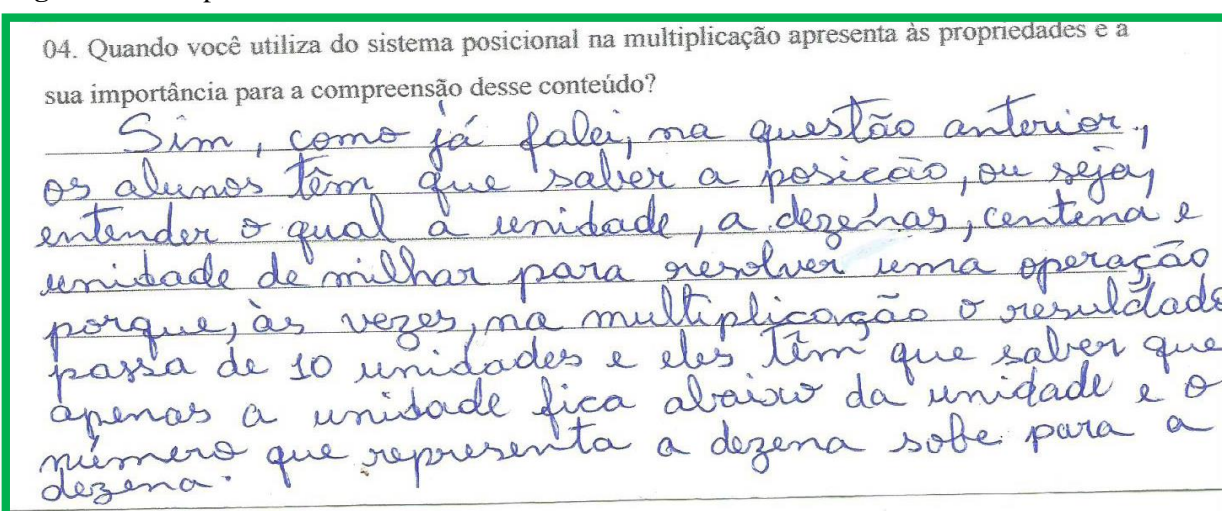 04. Quando você utiliza do sistema posicional na multiplicação apresenta às propriedades e a
sua importância para a compreensão desse conteúdo?
Sim, como já falei, na questão anterior,
os alunos têm que saber a posicão, ou seja,
entender o qual a unidade, a dezenas, centena e
unidade de milhar para resolver uma operação
porque, às vezes, na multiplicação o resuldado
passa de 10 unidades e eles têm que saber que
apenas a unidade fica abaixo da unidade e o
número que representa a dezena sobe para a
dezena.